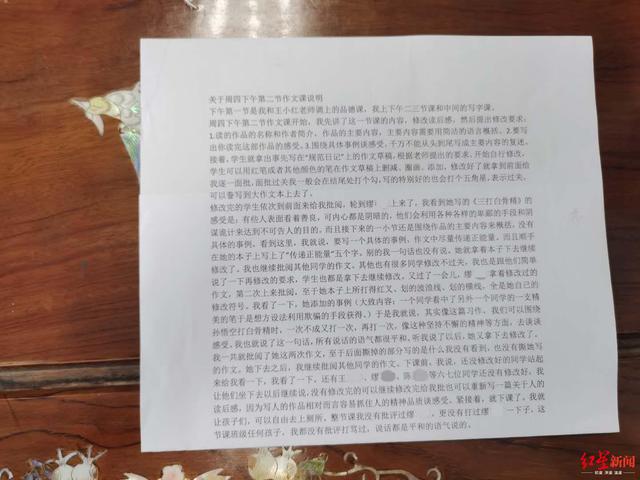 关于周四下午第二节作文课说明
下午第一节是我和王小红老师调上的品德课，我上下午二三节课和中间的写字课。
周四下午第二节作文课开始，我先讲了这一节课的内容，修改读后感，然后提出修改要求：
1.读的作品的名称和作者简介、作品的主要内容，主要内容需要用简洁的语言概括。2.要写
出你读完这部作品的感受。3.围绕具体事例谈感受，千万不能从头到尾写成主要内容的复述。
接着，学生就拿出事先写在“规范日记”上的作文草稿，根据老师提出的要求，开始自行修改，
学生可以用红笔或者其他颜色的笔在作文草稿上删减、圈画、添加，修改好了就拿到前面给
我逐一面批，面批过关我一般会在结尾处打个勾，写的特别好的也会打个五角星，表示过关，
可以誊写到大作文本上去了。
修改完的学生依次到前面来给我批阅，轮到缪 上来了，我看到她写的《三打白骨精》的
感受是：有些人表面看着善良，可内心都是阴暗的，他们会利用各种各样的卑鄙的手段和阴
谋诡计来达到不可告人的目的，而且接下来的一小节还是围绕作品的主要内容来概括，没有
具体的事例，看到这里，我就说，要写一个具体的事例，作文中尽量传递正能量，而且顺手
在她的本子上写上了“传递正能量”五个字，别的我一句话也没有说。她就拿着本子下去继续
修改了，我也继续批阅其他同学的作文，其他也有很多同学修改不过关，我也是跟他们简单
说了一下再修改的要求，学生也都是拿下去继续修改，又过了一会儿，缪 拿着修改过的
作文，第二次上来批阅，至于她本子上所打得红叉，划的波浪线、划的横线，全是她自己的
修改符号。我看了一下，她添加的事例（大致内容：一个同学看中了另外一个同学的一支精
美的笔于是想方设法利用欺骗的手段获得。）于是我就说，其实像这篇习作，我们可以围绕
孙悟空打白骨精时，一次不成又打一次，再打一次，像这种坚持不懈的精神等方面，去谈谈
感受。我也就说了这一句话，所有说话的语气都很平和，听我说了以后，她又拿下去修改了。
我一共就批阅了她这两次作文，至于后面撕掉的部分写的是什么我没有看到，也没有撕她写
的作文。她下去之后，我继续批阅其他同学的作文，下课前，我说，还没修改好的同学站起
来给我看一下，我看了一下，还有王 、缪 、陈 等六七位同学还没有修改好，我
让他们坐下去以后继续说，没有修改完的可以继续修改完给我批也可以重新写一篇关于人的
读后感，因为写人的作品相对而言容易抓住人的精神品质谈感受，紧接着，就下课了，我就
让孩子们，可以自由去上厕所，整节课我没有批评过缪 ，更没有打过缪 一下子，这
节课班级任何孩子，我都没有批评打骂过，说话都是平和的语气说的。
红星新闻